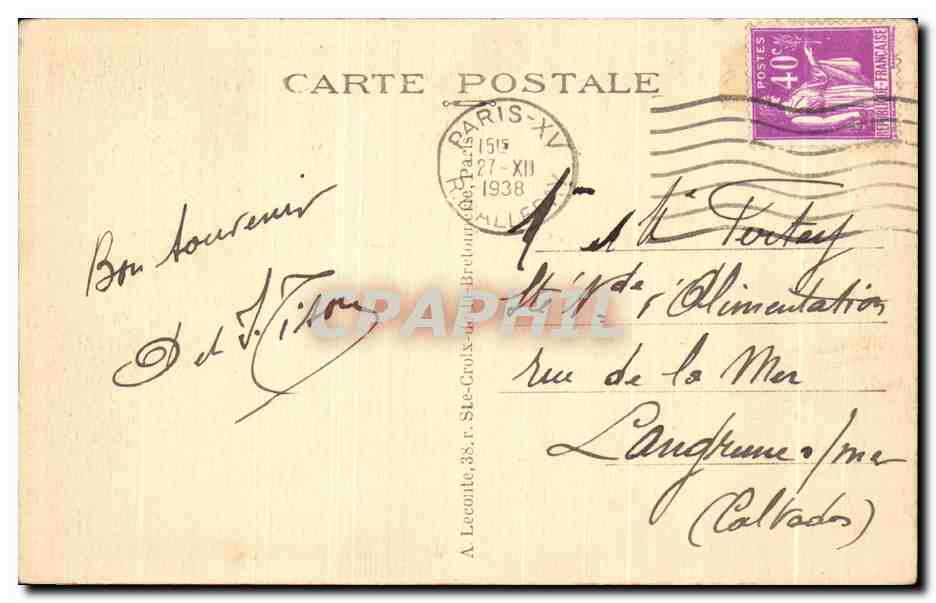 CARTE POSTALE
POSTES
40c
REPUBLIQUE FRANÇAISE
PARIS-XV
15
27-XII
1938
R.
Bon souvenir
D et J. Tison
A. Leconte, 38, r. Ste-Croix-de-la-Bretonnerie, Paris
CPAPHIL
Mr et Me
Sté Nde d'Alimentation
rue de la Mer
Langrune s/mer
(Calvados)